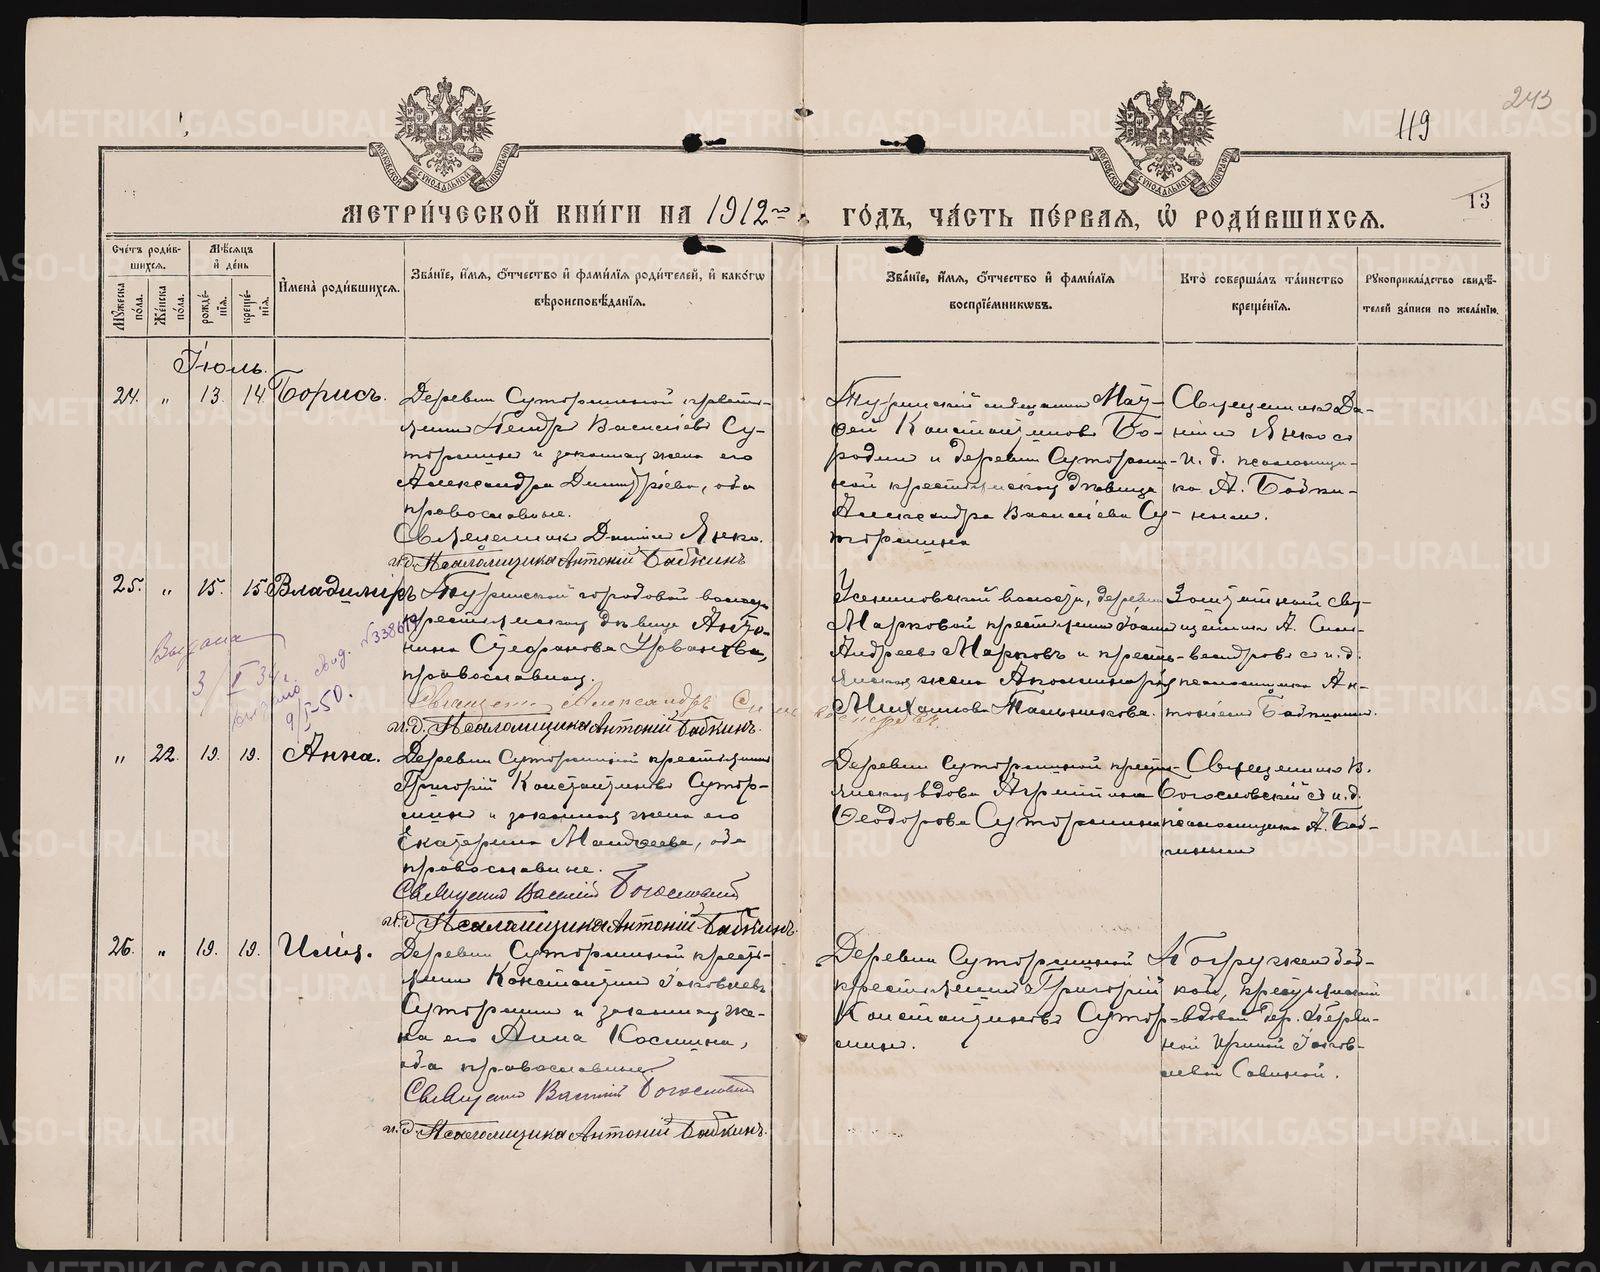 METRIKI.GASO-URAL.RU
243
119
13
МОСКОВСКОЙ СѴНОДАЛЬНОЙ ТИПОГРАФІИ
МОСКОВСКОЙ СѴНОДАЛЬНОЙ ТИПОГРАФІИ
МЕТРИ́ЧЕСКОЙ КНИ́ГИ НА 1912 го́дъ, ча́сть пе́рваѧ, ѡ҆ роди́вшихсѧ.
Сче́тъ роди́в-
шихсѧ.
Мꙋ́жеска
по́ла.
Же́нска
по́ла.
Мѣ́сѧцъ
и҆ де́нь
рожде́-
нїѧ.
креще́-
нїѧ.
И҆мена̀ роди́вшихсѧ.
Зва́нїе, и҆́мѧ, ѻ҆́тчество и҆ фами́лїѧ роди́телей, и҆ како́гѡ
вѣроисповѣ́данїѧ.
Зва́нїе, и҆́мѧ, ѻ҆́тчество и҆ фами́лїѧ
воспрїе́мникѡвъ.
Кто̀ соверша́лъ та́инство
креще́нїѧ.
Рꙋкоприкла́дство свидѣ́-
телей за́писи по жела́нїю.
Іюль.
24. „ 13. 14. Борисъ.
Деревни Суторминой кресть-
янинъ Петръ Василіевъ Су-
торминъ и законная жена его
Александра Димитріева, оба
православные.
Священник Даніил Янко.
и.д. Псаломщика Антоній Бабкинъ
Туринский мещанинъ Мат-
фей Константиновъ Бо-
родин и деревни Сутормин-
ной крестьянская дѣвица
Александра Василіева Су-
тормина
Священникъ Да-
ніилъ Янко съ
и. д. псаломщи-
ка А. Бабки-
нымъ.
25. „ 15. 15. Владиміръ
Туринской городовой волости
крестьянская дѣвица Анто-
нина Стефанова Урванцева,
православная.
Священникъ Александръ
и.д. Псаломщика Антоній Бабкинъ.
Выдана
3/V 34 г.
свид. №33861
9/I-50.
Усениновской волости, деревни
Марковой крестьянинъ Іоаннъ
Андреевъ Марковъ и кресть-
янская жена Аполлинарія
Михаилова Тальникова.
Заштатный свя-
щенникъ А.
съ и. д.
псаломщика Ан-
тоніемъ Бабкинымъ.
„ 22. 19. 19. Анна.
Деревни Суторминой крестьянинъ
Григорій Константиновъ Сутор-
минъ и законная жена его
Екатерина Матѳеева, оба
православные.
Священникъ Василій Богословскій
и.д. Псаломщика Антоній Бабкинъ.
Деревни Суторминой кресть-
янская вдова Агриппина
Ѳеодорова Сутормина
Священникъ В.
Богословскій съ и.д.
псаломщика А. Баб-
кинымъ
26. „ 19. 19. Илія.
Деревни Суторминой кресть-
янинъ Константинъ Іаковлевъ
Суторминъ и законная же-
на его Анна Космина,
оба православные.
Священникъ Василій Богословскій
и.д. Псаломщика Антоній Бабкинъ.
Деревни Суторминой
крестьянинъ Григорій
Константиновъ Сутор-
минъ.
Погруженъ баб-
кой, крестьянской
вдовой дер.
Ириной Іаков-
левой Савиной.